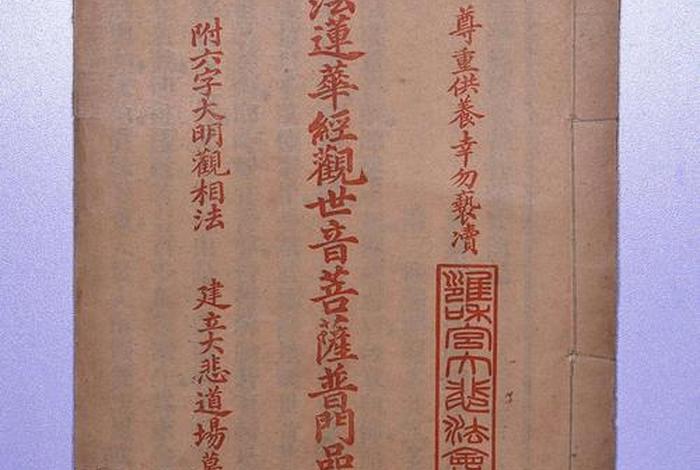 尊重供養幸勿褻瀆
雍和宮大悲法會
法蓮華經觀世音菩薩普門品
附六字大明觀相法 建立大悲道場萬